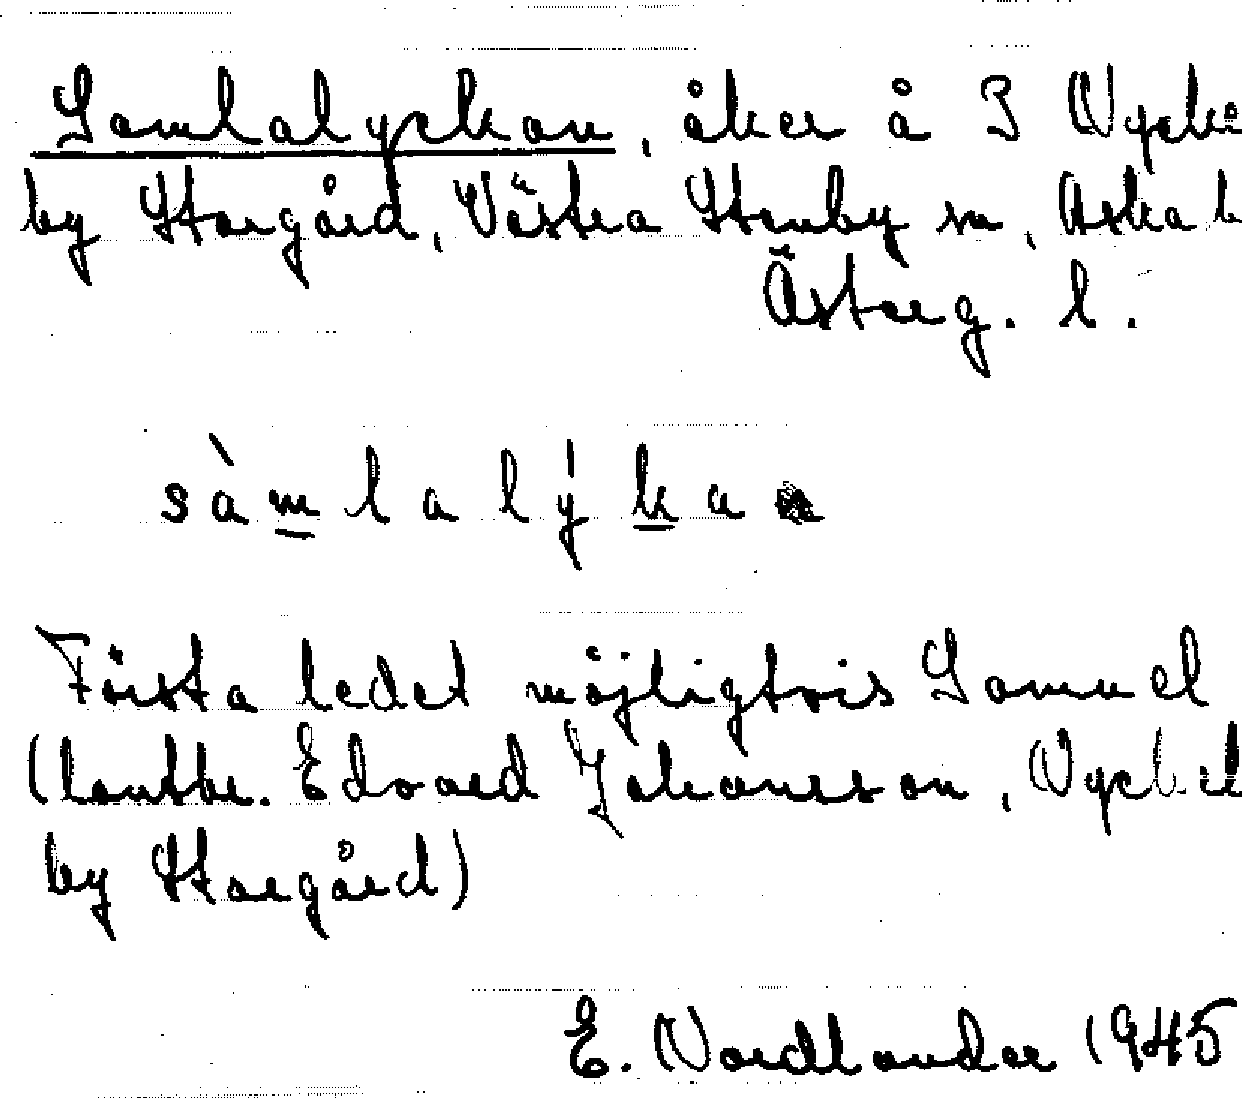 Samlalyckan, åker å 3 Nycke
by Storgård, Västra Stenby sn, Aska h
Österg. l.
sàmlalýka
Första ledet möjligtvis Samuel
(lantbr. Edvard Johansson, Nyckel
by Storgård)
E. Nordlander 1945